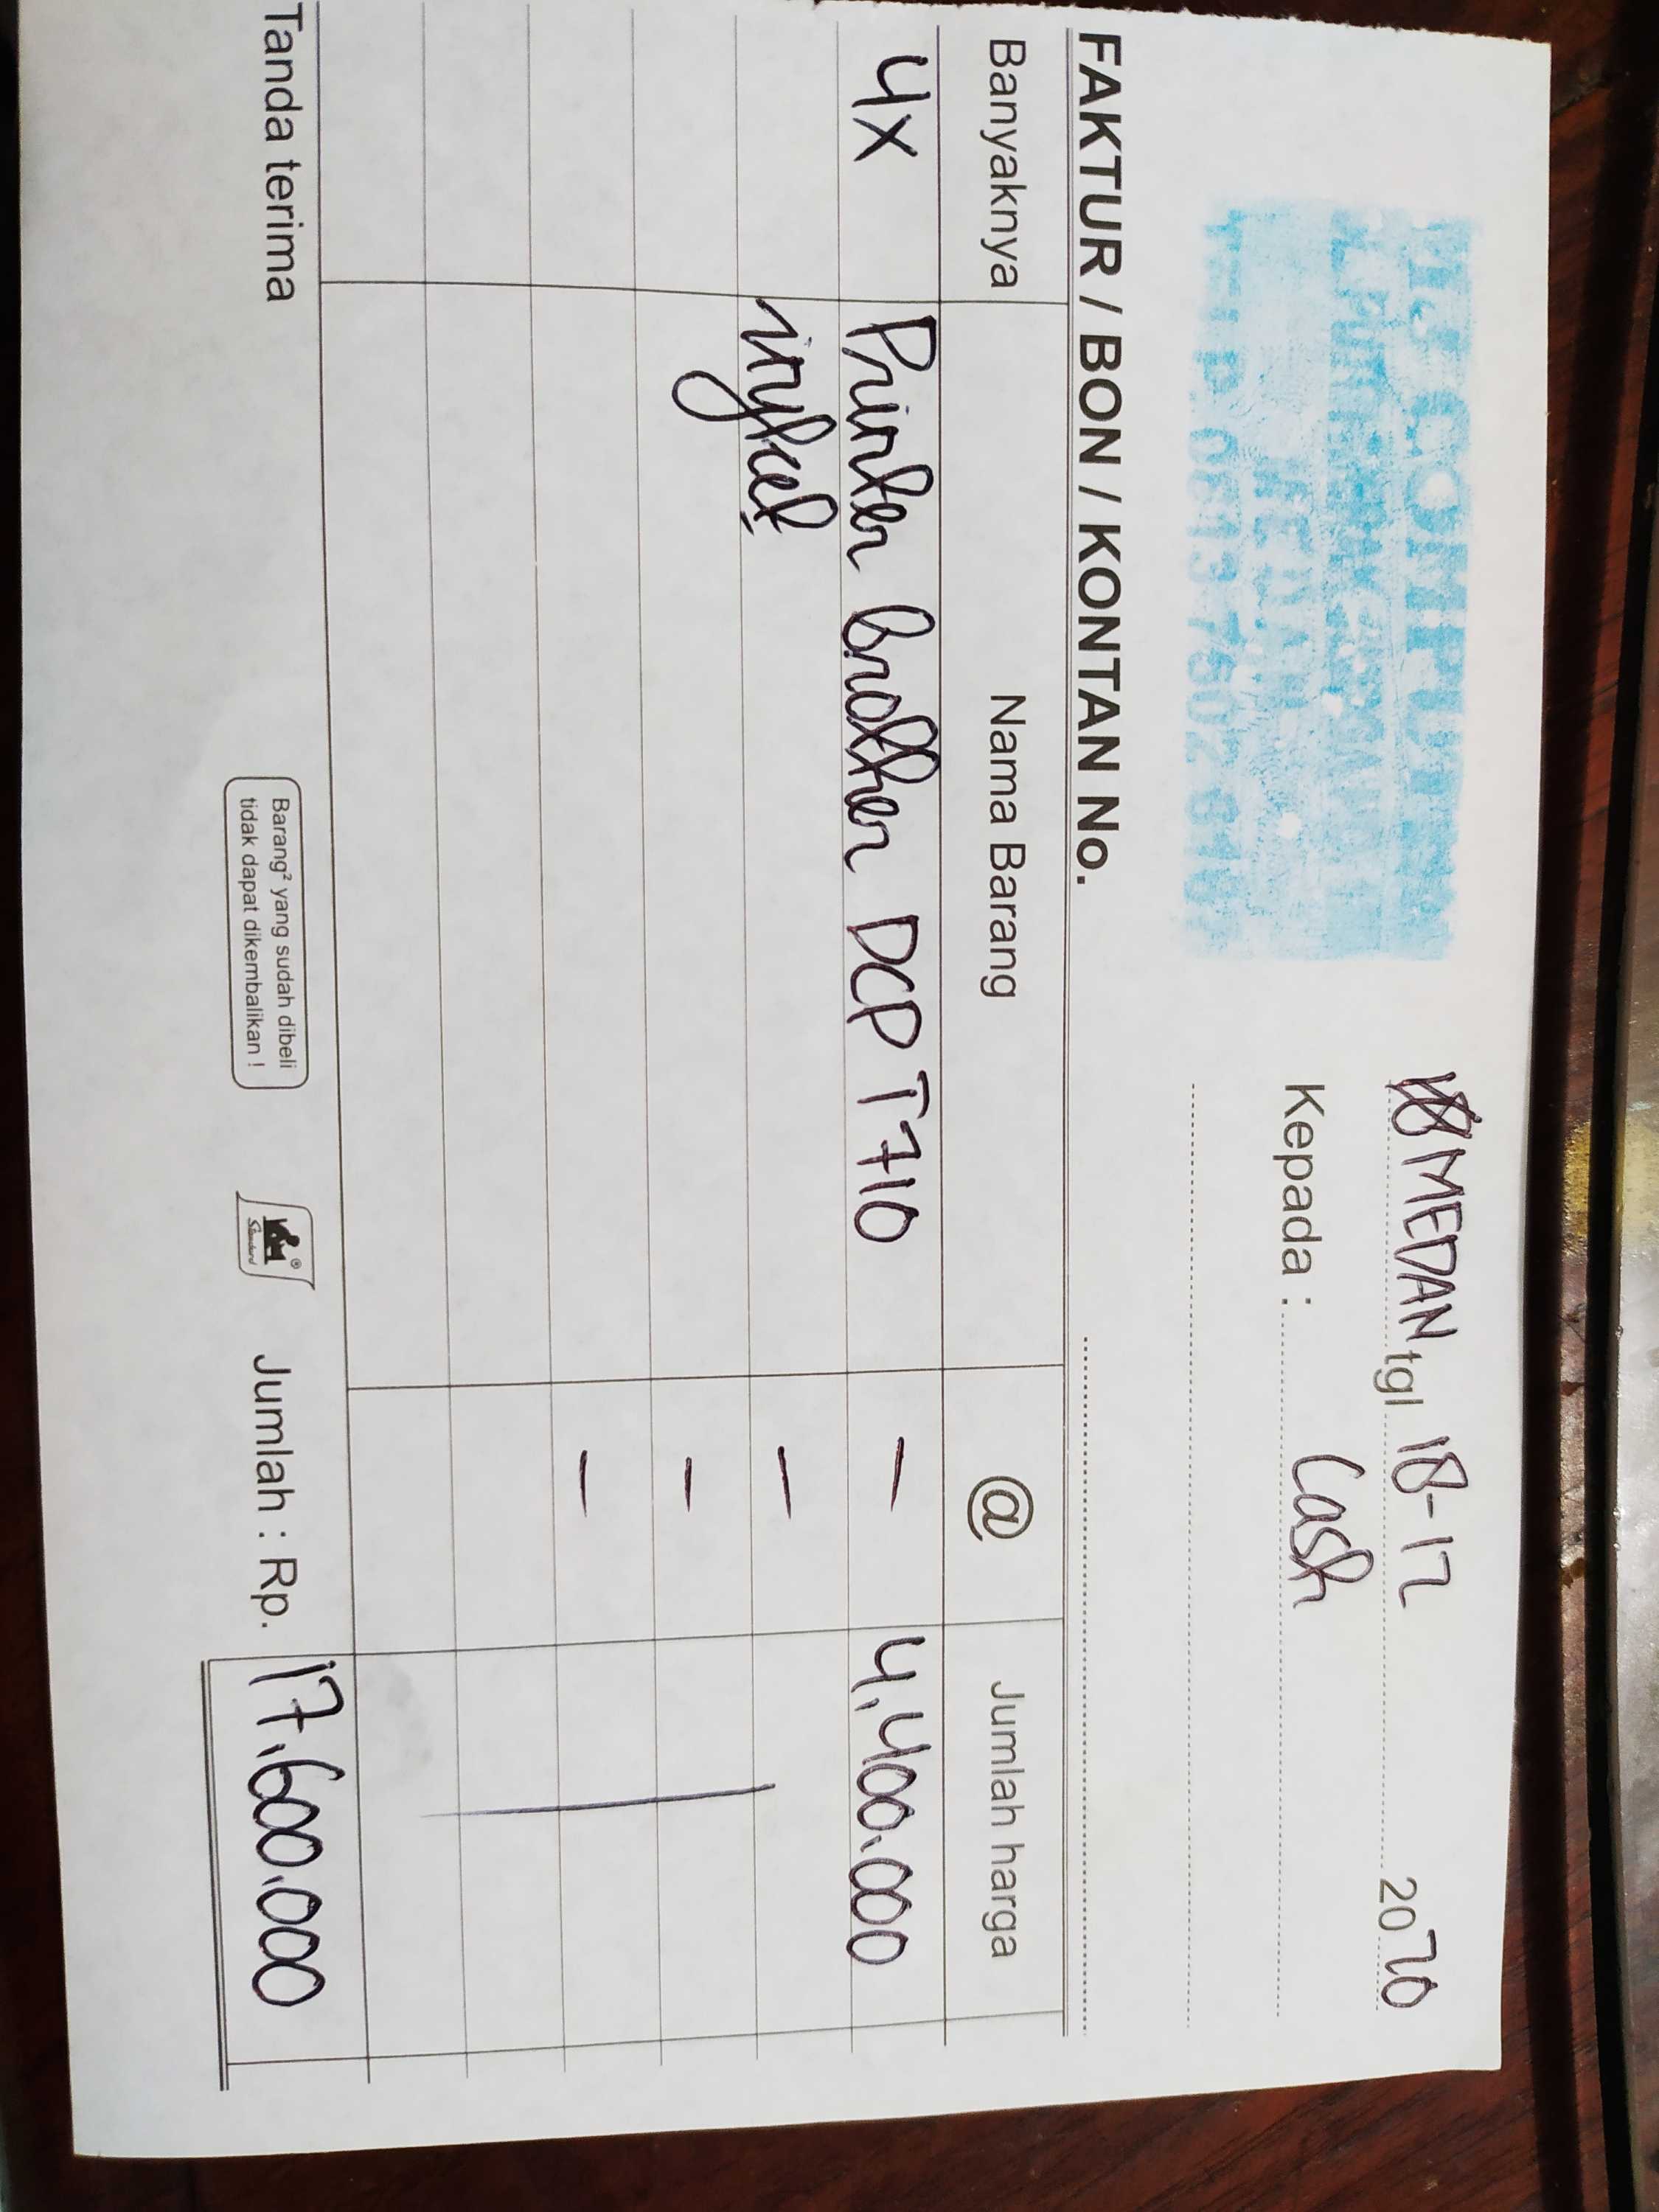 COMPUTER
MEDAN
TELP. 0813 7502
MEDAN tgl 18-12 2020
Kepada : Cash
FAKTUR / BON / KONTAN No.
Banyaknya Nama Barang @ Jumlah harga
4x Printer brother DCP T710 - 4,400.000
inkjet -
-
-
Tanda terima
Barang² yang sudah dibeli
tidak dapat dikembalikan !
Standard
Jumlah : Rp. 17.600.000